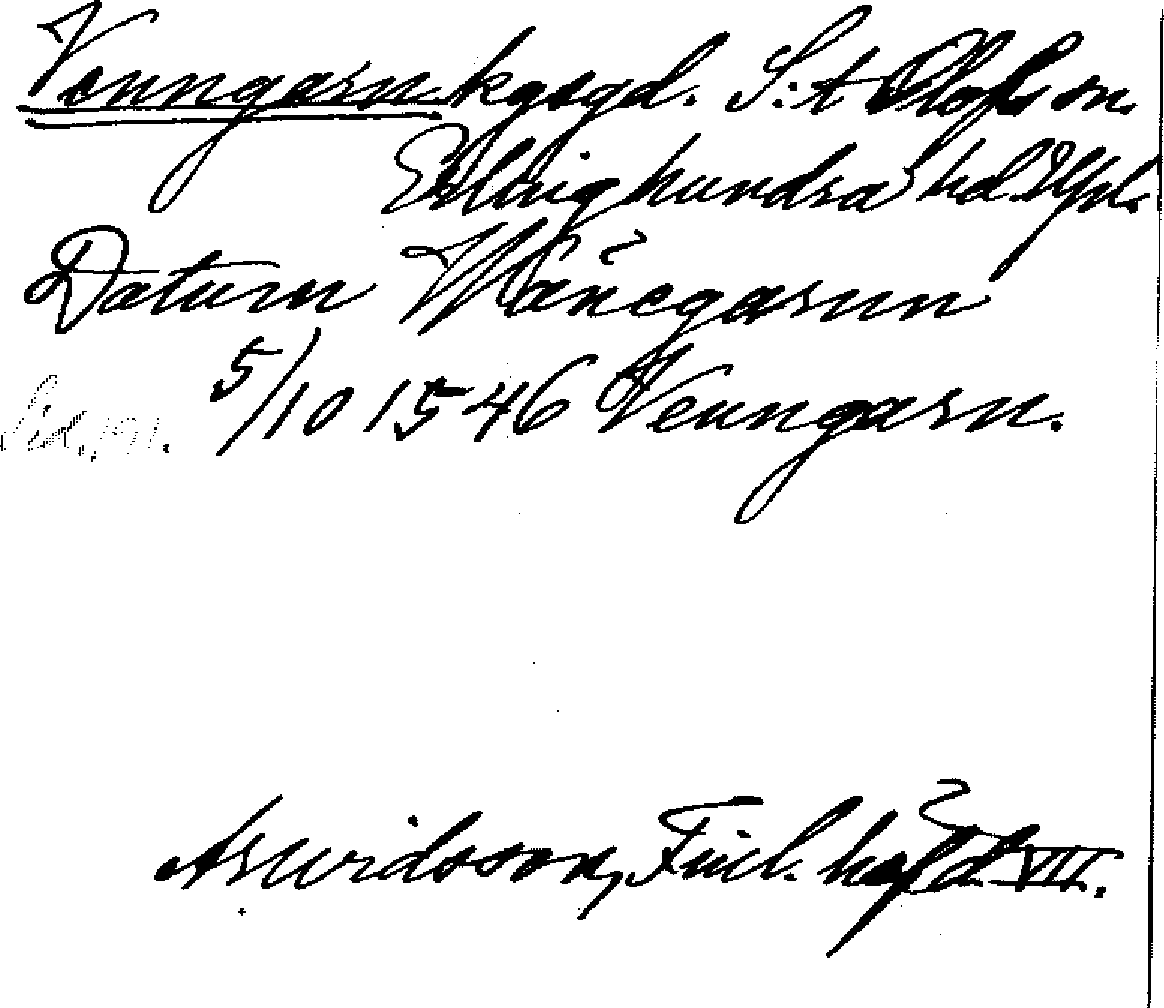 Venngarn kgsgd. S:t Olofs sn.
Erlinghundra hd. Upl.
Datum Wänegarnn
5/10 1546 Venngarn.
Arwidsson, Finl. häfd. VII.